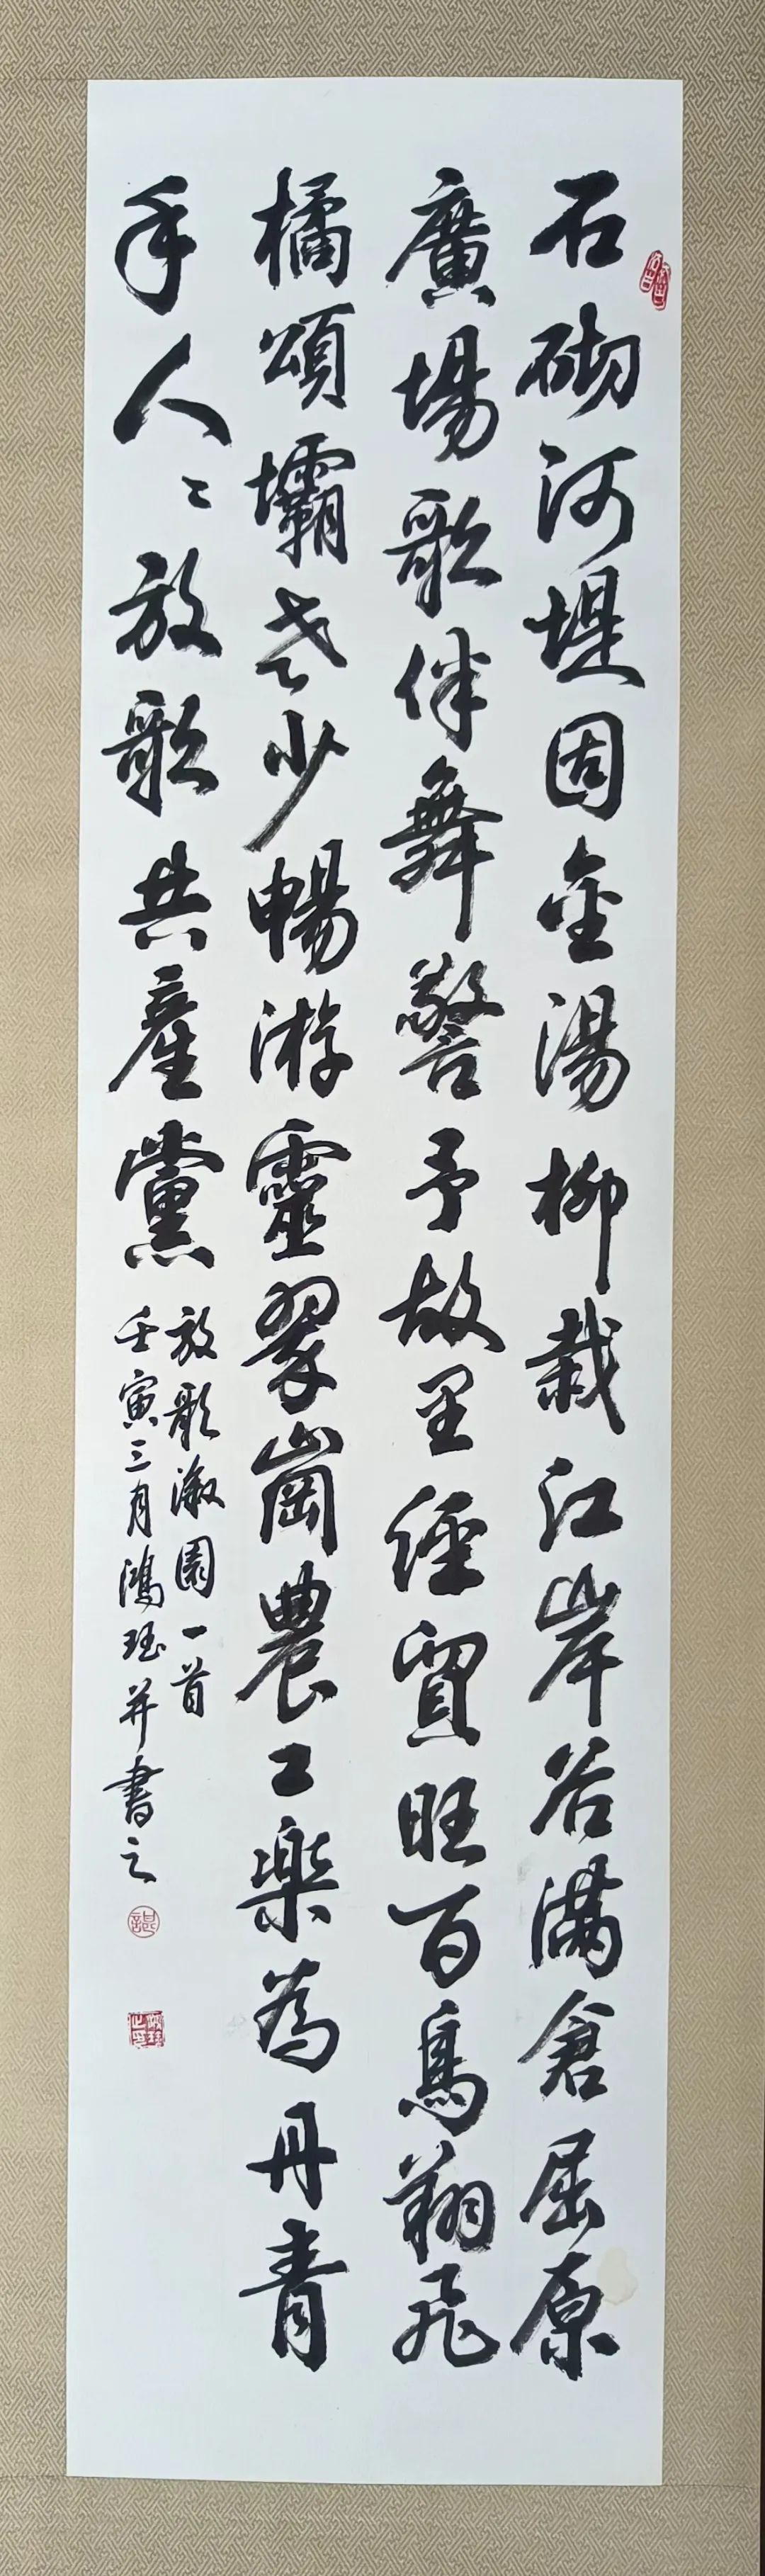 石砌河堤固金湯柳栽江岸谷滿倉屈原
廣場歌伴舞警予故里經貿旺百鳥翔飛
橘頌壩老少暢游靈翠崗農工樂為丹青
手人〻放歌共產黨
放歌溆園一首
壬寅三月鴻珏并書之